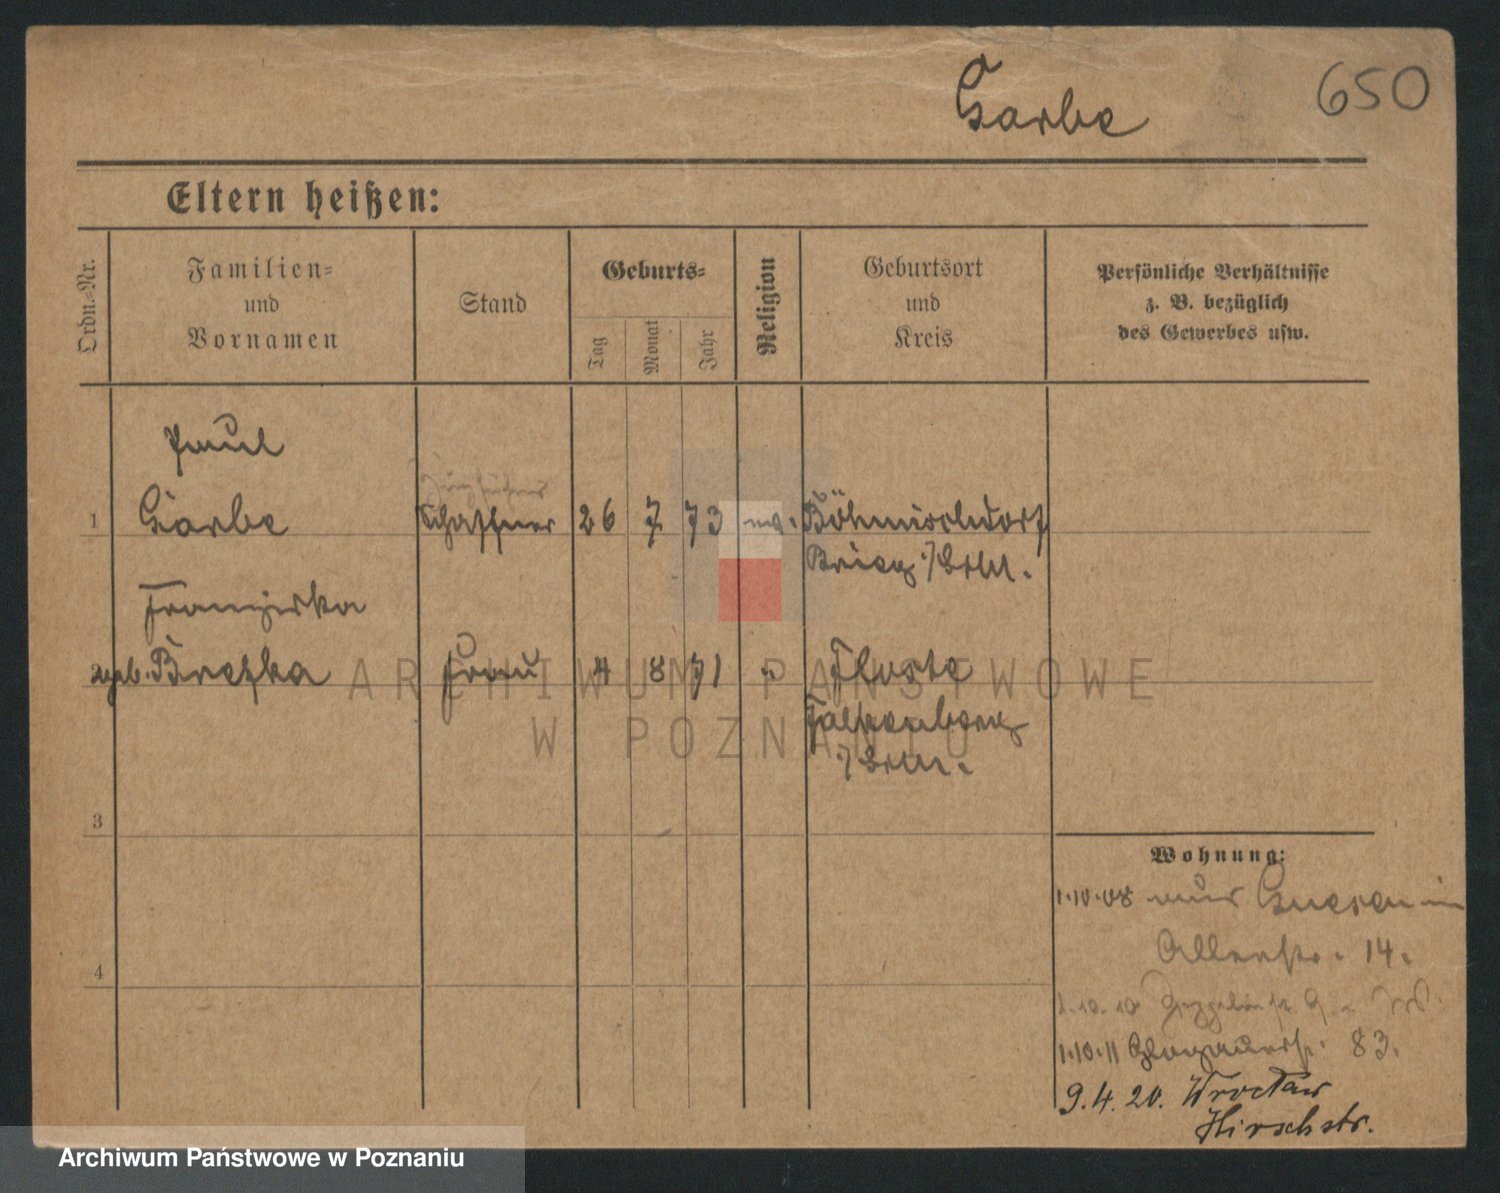 Garbe
650
Eltern heißen:
Ordn.-Nr.
Familien-
und
Vornamen
Stand
Geburts-
Tag
Monat
Jahr
Religion
Geburtsort
und
Kreis
Persönliche Verhältnisse
z. B. bezüglich
des Gewerbes usw.
Paul
Zugführer
1 Garbe Schaffner 26 7 73 Böhmischdorf
Brieg
Franziska
2 geb. Frau 4 8 71 "
Falkenberg
3
4
Wohnung:
1.10.08 Gnesen
14.
1.10.10 9
1.10.11 Glogauerstr. 83.
9.4.20. Wrocław
Hirschstr.
ARCHIWUM PAŃSTWOWE
W POZNANIU
Archiwum Państwowe w Poznaniu